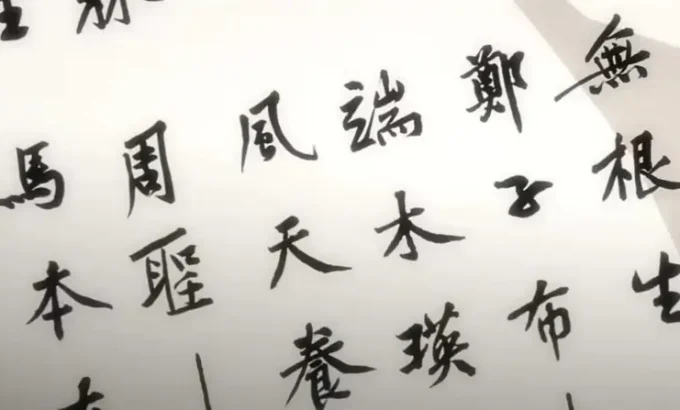 無根生
鄭子布
端木瑛
風天養
周聖
馬本